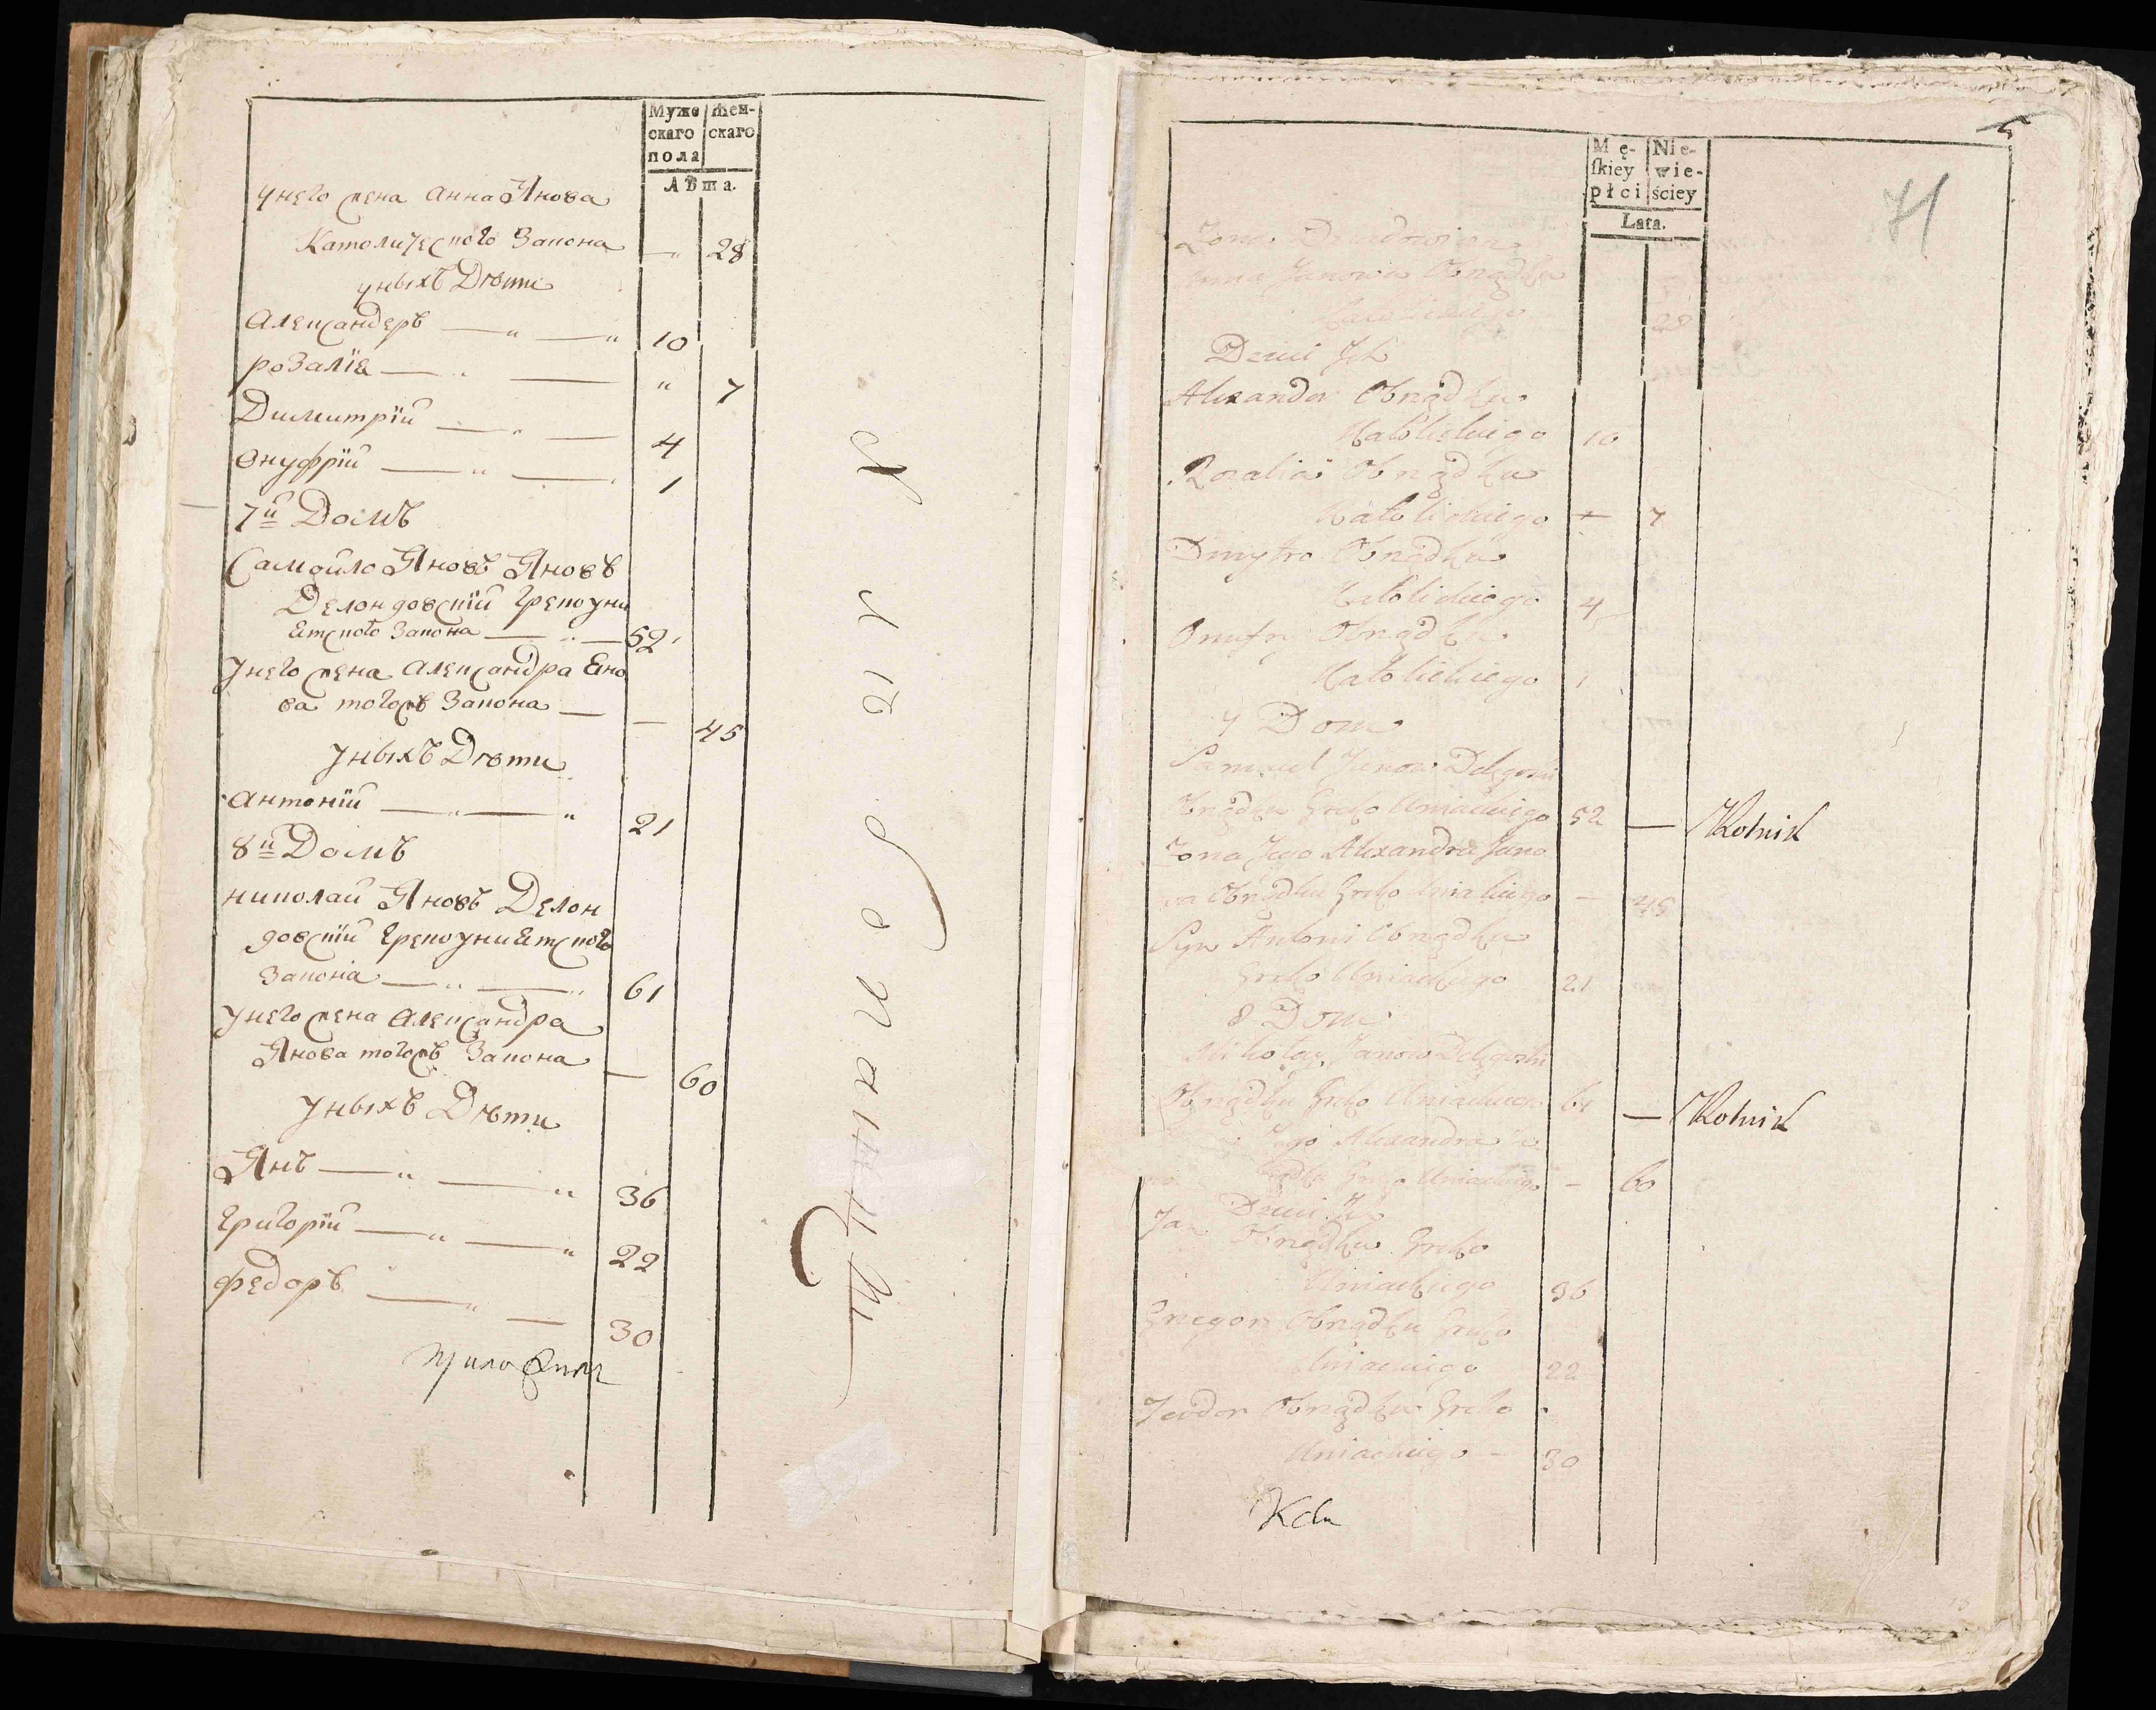 Муже Жен-
скаго скаго
пола
Лѣта.
унего жена анна Янова
Католического Закона — " 28
уныхъ Дѣти
Александеръ — " — " 10
розаліѧ — " — " 7
Димитрій — " — 4
Онуфрій — " — 1
7й Домъ
Самойло Яновъ Яновъ
Делондовскій Грекоуни
Етского Закона — " — 52
Унего жена александра Ено
ва тогожъ Закона — — 45
Уныхъ Дѣти
антоній — " — " 21
8й Домъ
николай Яновъ Делон
довскій Грекоуниетского
Закона — " — " 61
Унего жена александра
Янова тогожъ Закона — 60
Уныхъ Дѣти
Янъ — " — " 36
Григорій — " — " 22
Федоръ — " — 30
Mę- Nie-
skiey wie-
płci ściey
Lata.
71
Żona
Anna Janowa Obrządku
Katolickiego 28
Dzieci Jch
Alexander Obrządku
Katolickiego 10
Rozalia Obrządku
Katolickiego — 7
Dmytro Obrządku
Katolickiego 4
Onufry Obrządku
Katolickiego 1
7 Dom
Samuel Janow Delęgoski
Obrządku Greko Uniackiego 52 — Rotnik
Żona Jego Alexandra Jano
wa Obrządku Greko Uniackiego — 45
Syn Antoni Obrządku
Greko Uniackiego 21
8 Dom
Mikołay Janow Delęgoski
Obrządku Greko Uniackiego 61 — Rotnik
Jego Alexandra
Greko Uniackiego — 60
Dzieci Jch
Jan Obrządku Greko
Uniackiego 36
Gregory Obrządku Greko
Uniackiego 22
Teodor Obrządku Greko
Uniackiego — 30